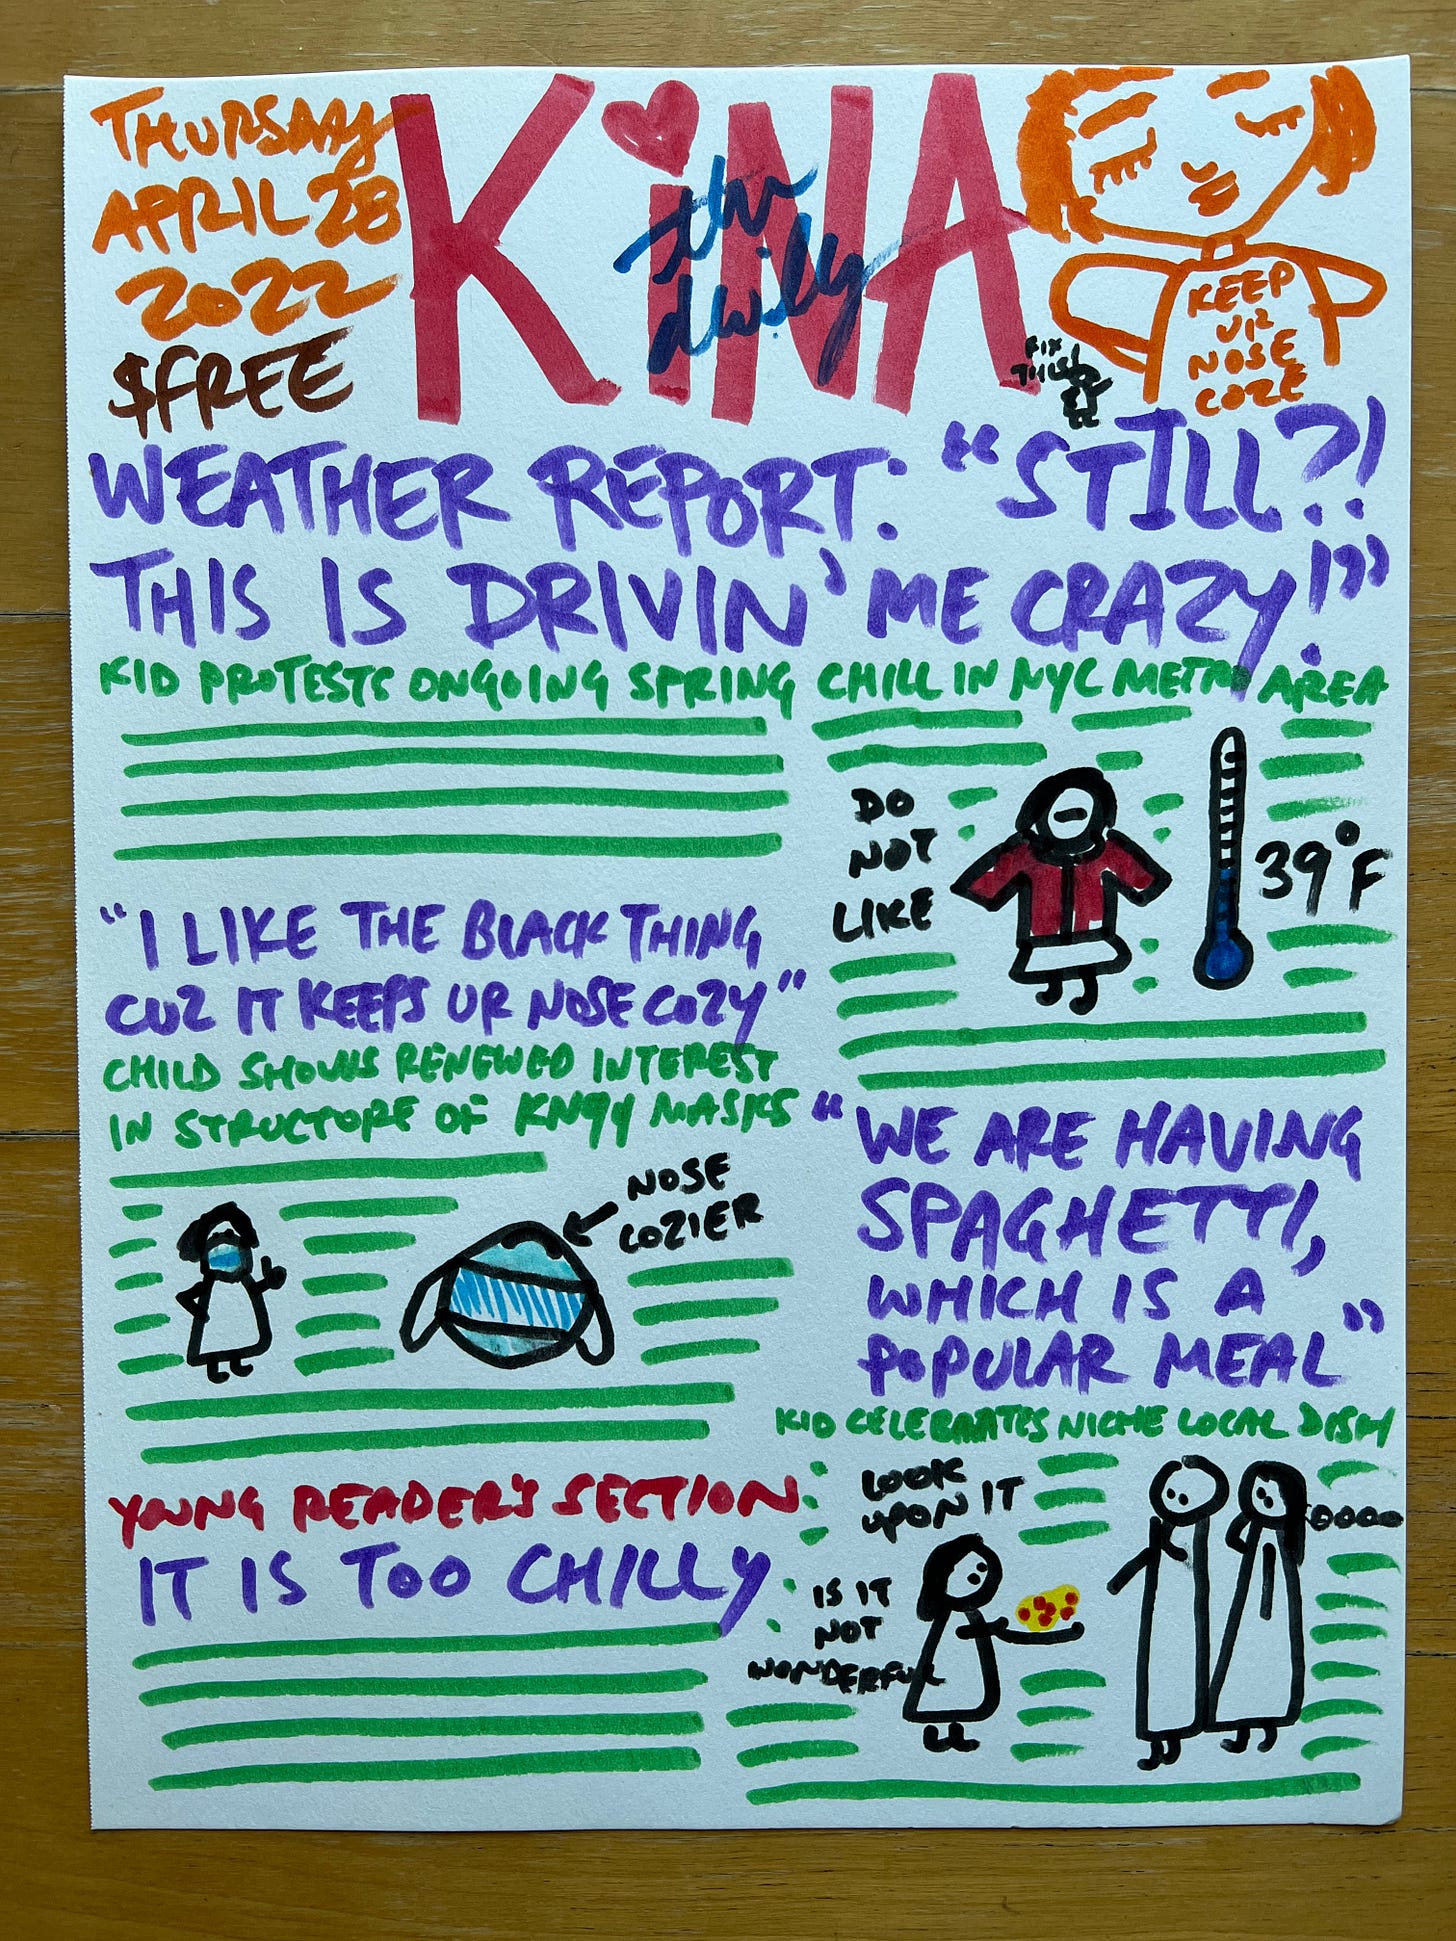 THURSDAY
APRIL 28
2022
$FREE
KiNA
the
daily
KEEP
UR
NOSE
COZE
FIX
THIS!
WEATHER REPORT: "STILL?!
THIS IS DRIVIN' ME CRAZY!"
KID PROTESTS ONGOING SPRING CHILL IN NYC METRO AREA
DO
NOT
LIKE
39°F
"I LIKE THE BLACK THING
CUZ IT KEEPS UR NOSE COZY"
CHILD SHOWS RENEWED INTEREST
IN STRUCTURE OF KN94 MASKS
NOSE
COZIER
"WE ARE HAVING
SPAGHETTI,
WHICH IS A
POPULAR MEAL"
KID CELEBRATES NICHE LOCAL DISH
LOOK
UPON IT
IS IT
NOT
WONDERFUL
OOOO
YOUNG READER'S SECTION
IT IS TOO CHILLY